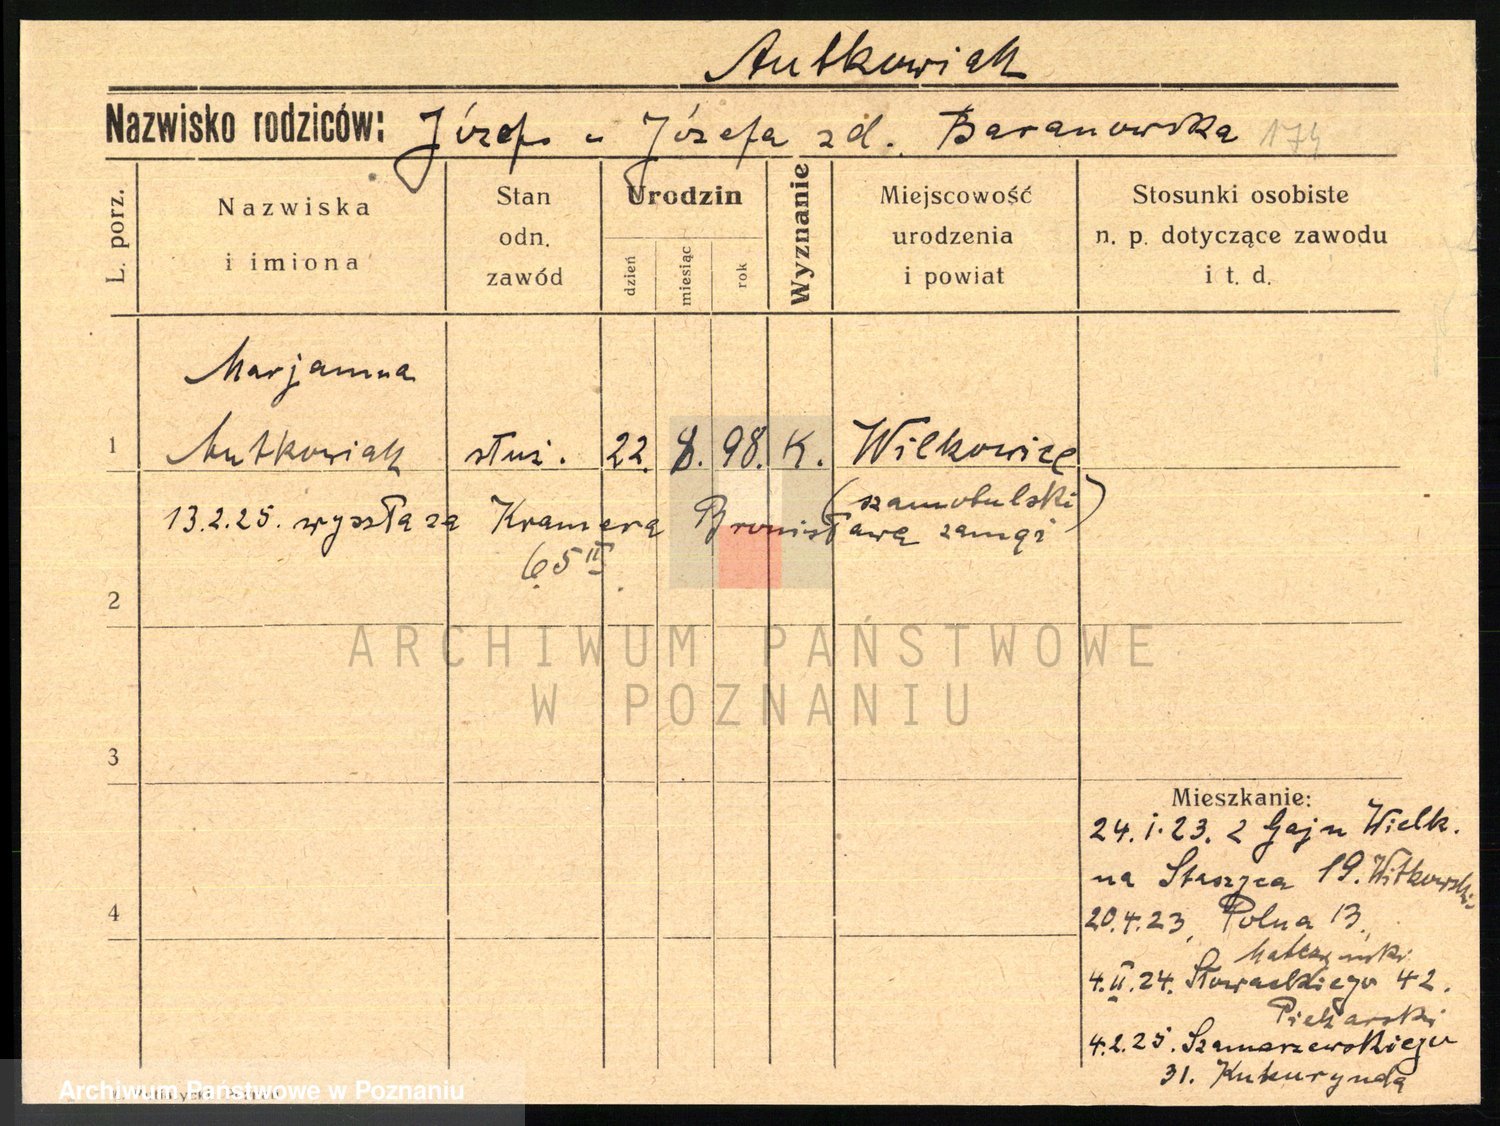 Antkowiak
Nazwisko rodziców: Józef i Józefa zd. Baranowska 174
L. porz.
Nazwiska
i imiona
Stan
odn.
zawód
Urodzin
dzień
miesiąc
rok
Wyznanie
Miejscowość
urodzenia
i powiat
Stosunki osobiste
n. p. dotyczące zawodu
i t. d.
Marjanna
1 Antkowiak służ. 22. 8. 98. K. Wilkowice
(szamotulski)
13.2.25. wyszła za Kramera Bronisława zamąż
65 II
2
ARCHIWUM PAŃSTWOWE
W POZNANIU
3
4
Mieszkanie:
24.I.23. z Gaju Wielk.
na Staszyca 19. Witkowski
20.4.23, Polna 13,
4.II.24. Słowackiego 42.
Piekarski
4.2.25. Szamarzewskiego
31. Kukurynda
Archiwum Państwowe w Poznaniu